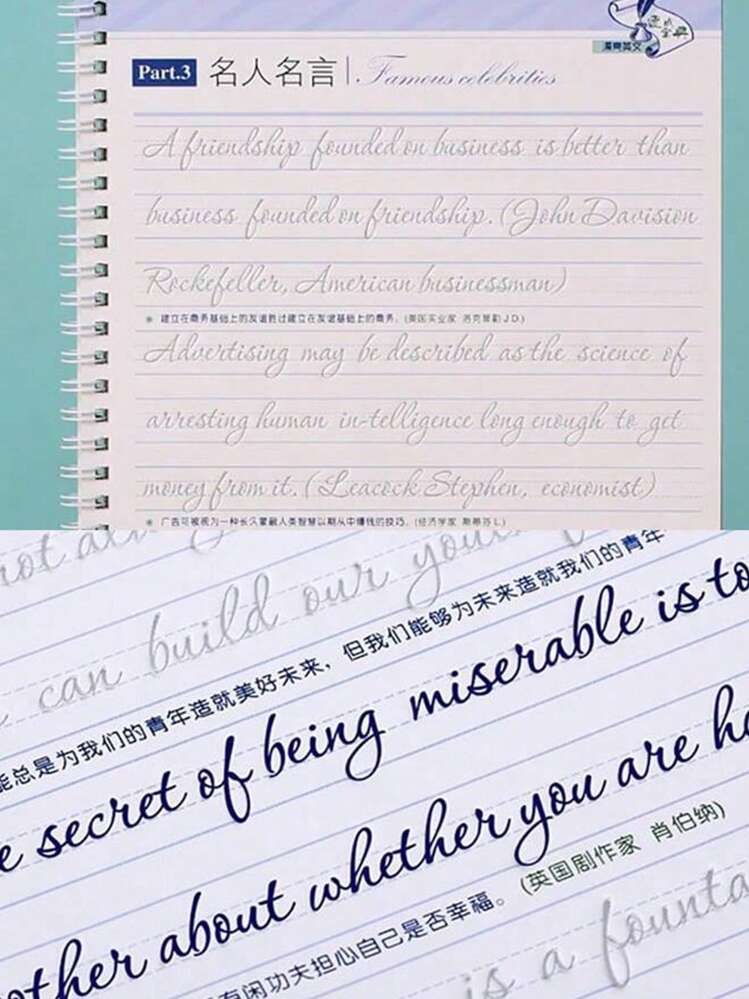 Part.3 名人名言 Famous celebrities
漂亮英文
A friendship founded on business is better than
business founded on friendship. (John Davision
Rockefeller, American businessman)
建立在商务基础上的友谊胜过建立在友谊基础上的商务。(美国实业家 洛克菲勒 J.D.)
Advertising may be described as the science of
arresting human in-telligence long enough to get
money from it. (Leacock Stephen, economist)
广告可被视为一种长久蒙蔽人类智慧以期从中赚钱的技巧。(经济学家 斯蒂芬 L.)
not
can build our you
能总是为我们的青年造就美好未来,但我们能够为未来造就我们的青年
e secret of being miserable is to
other about whether you are ha
有闲功夫担心自己是否幸福。(英国剧作家 肖伯纳)
is a founta